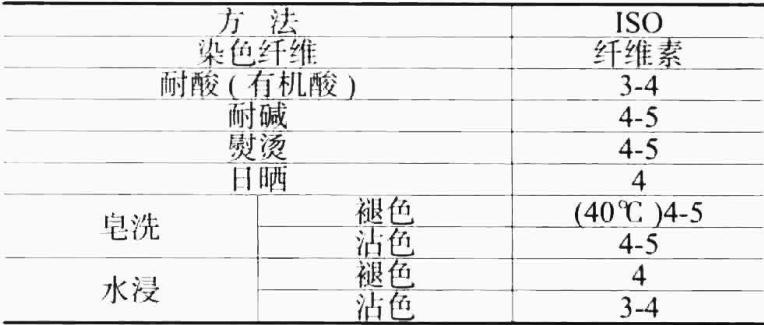 方 法 ISO
染色纤维 纤维素
耐酸 ( 有机酸 ) 3-4
耐碱 4-5
熨烫 4-5
日晒 4
皂洗 褪色 (40℃ )4-5
沾色 4-5
水浸 褪色 4
沾色 3-4